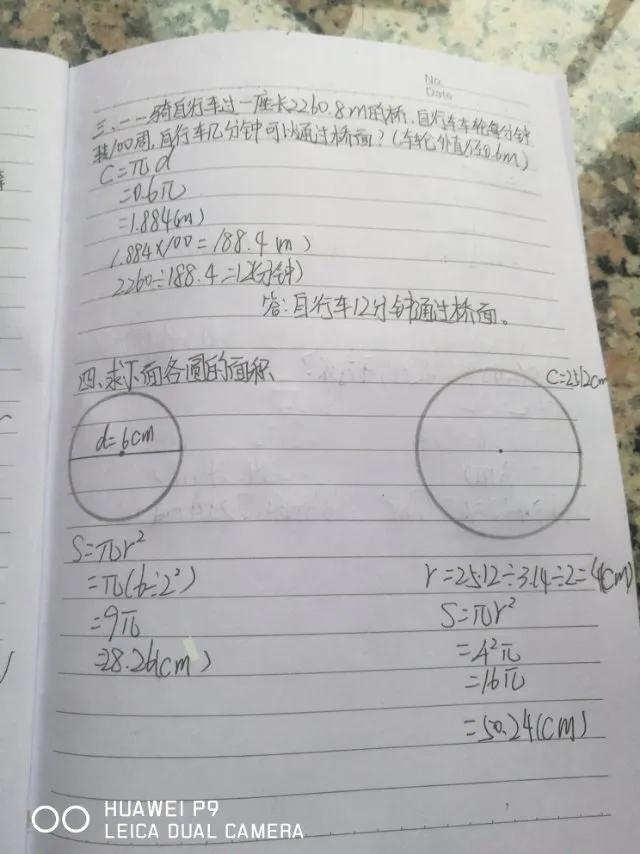 No.
Date
三、一一骑自行车过一座长2260.8m的桥,自行车车轮每分钟
转100周,自行车几分钟可以通过桥面?(车轮外直径0.6m)
C=πd
=0.6π
=1.884(m)
1.884×100=188.4(m)
2260÷188.4=12(分钟)
答:自行车12分钟通过桥面。
四、求下面各圆的面积
C=25.12cm
d=6cm
S=πr²
=π(6÷2²)
=9π
=28.26(cm)
r=25.12÷3.14÷2=4(cm)
S=πr²
=4²π
=16π
=50.24(cm)
HUAWEI P9
LEICA DUAL CAMERA